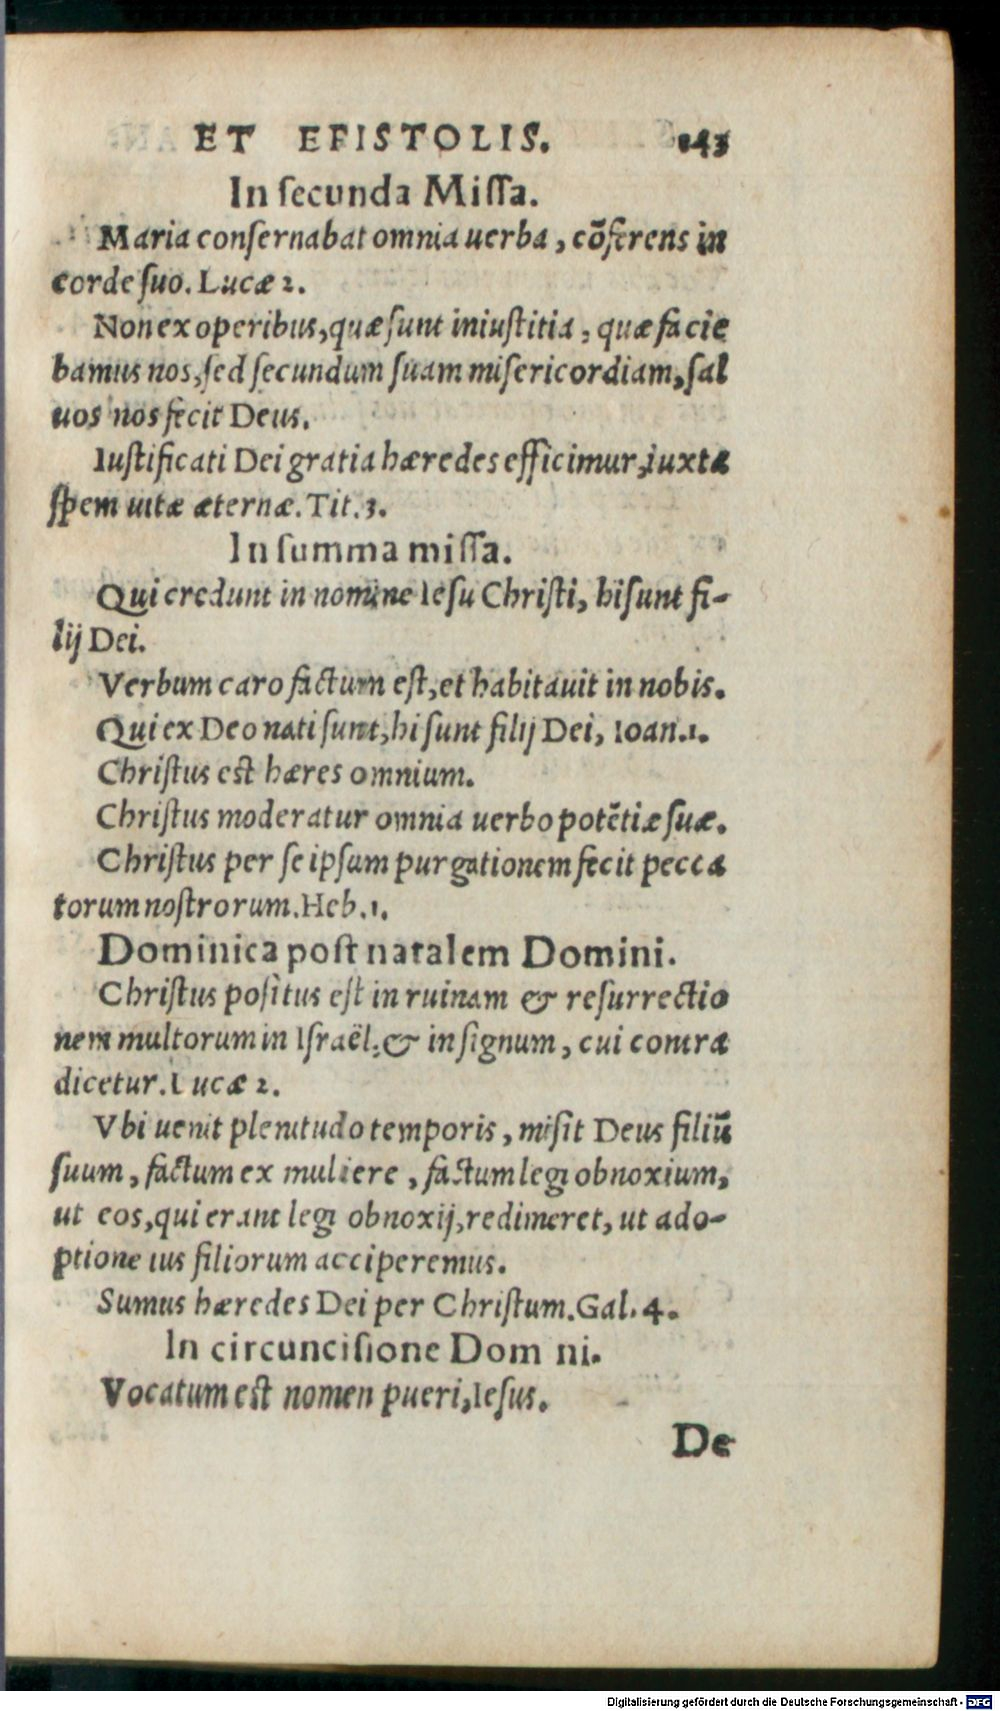 ET EPISTOLIS. 143
In ſecunda Miſſa.
Maria conſernabat omnia uerba, cõferens in
corde ſuo. Lucæ 2.
Non ex operibus, quæ ſunt iniuſtitia, quæ facie
bamus nos, ſed ſecundum ſuam miſericordiam, ſal
uos nos fecit Deus.
Iuſtificati Dei gratia hæredes efficimur, iuxta
ſpem uitæ æternæ. Tit. 3.
In ſumma miſſa.
Qui credunt in nomine Ieſu Chriſti, hi ſunt fi-
lij Dei.
Verbum caro factum eſt, et habitauit in nobis.
Qui ex Deo nati ſunt, hi ſunt filij Dei, Ioan. 1.
Chriſtus eſt hæres omnium.
Chriſtus moderatur omnia uerbo potẽtiæ ſuæ.
Chriſtus per ſe ipſum purgationem fecit pecca
torum noſtrorum. Heb. 1.
Dominica poſt natalem Domini.
Chriſtus poſitus eſt in ruinam & reſurrectio
nem multorum in Iſraël, & in ſignum, cui contra
dicetur. Lucæ 2.
Vbi uenit plenitudo temporis, miſit Deus filiũ
ſuum, factum ex muliere, factum legi obnoxium,
ut eos, qui erant legi obnoxij, redimeret, ut ado-
ptione ius filiorum acciperemus.
Sumus hæredes Dei per Chriſtum. Gal. 4.
In circunciſione Dom ni.
Vocatum eſt nomen pueri, Ieſus.
De
Digitalisierung gefördert durch die Deutsche Forschungsgemeinschaft - DFG